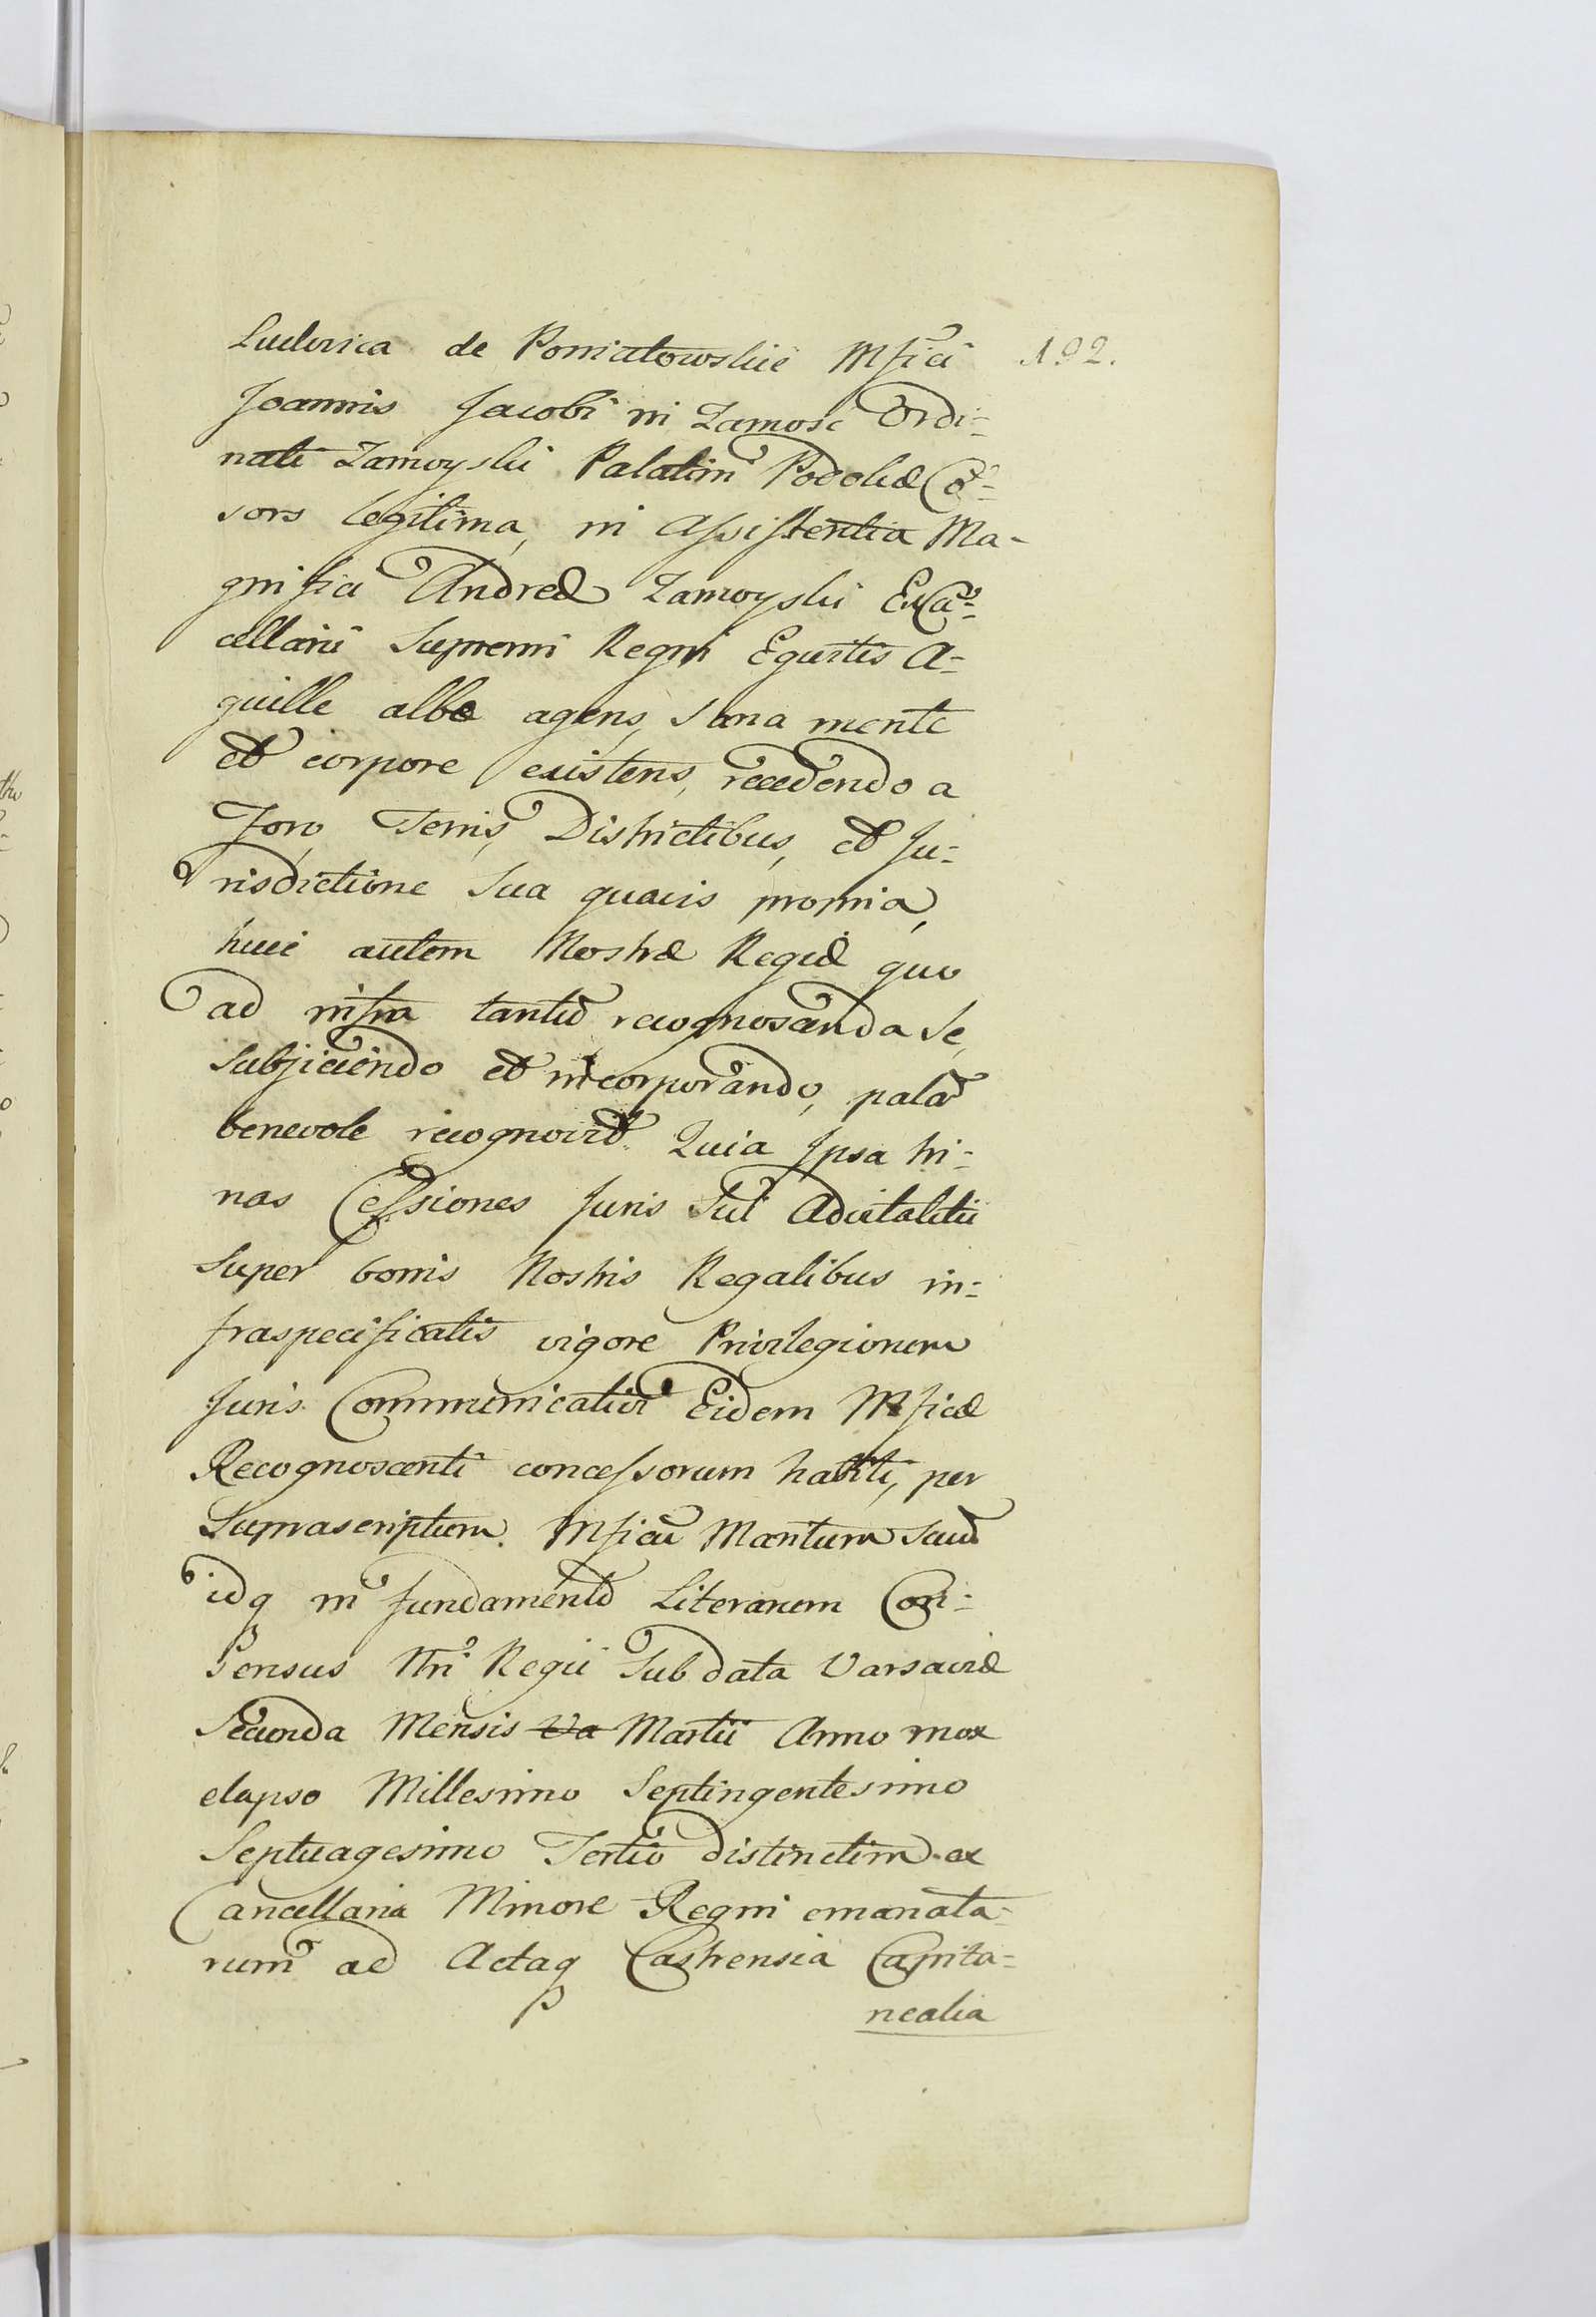 Ludovica de Poniatowskie Mfici 192.
Joannis Jacobi in Zamosc Ordi-
nati Zamoyski Palatini Podoliæ Cō-
sors legitima, in assistentia Ma-
gnifici Andreæ Zamoyski ExCā-
cellarii Supremi Regni Equitis A-
quille albæ agens, sana mente
et corpore existens, recedendo a
Foro, Terris, Districtibus, et Ju-
risdictione Sua quavis propria,
huic autem Nostræ Regiæ quo
ad infra tantū recognoscenda se
Subjiciendo et incorporando, palā
benevole recognovit. Quia Ipsa tri-
nas Cessiones Juris Sui Advitalitii
Super bonis Nostris Regalibus in-
fraspecificatis vigore Privilegiorum
Juris Communicativi Eidem Mficæ
Recognoscenti concessorum habiti, per
Suprascriptum Mficū Maritum Suū
idq in fundamento Literarum Con-
sensus Nri Regii Sub data Varsaviæ
Secunda Mensis Va Martii Anno mox
elapso Millesimo Septingentesimo
Septuagesimo Tertio distinctim ex
Cancellaria Minore Regni emanata-
rum ad Actaq Castrensia Capita-
nealia